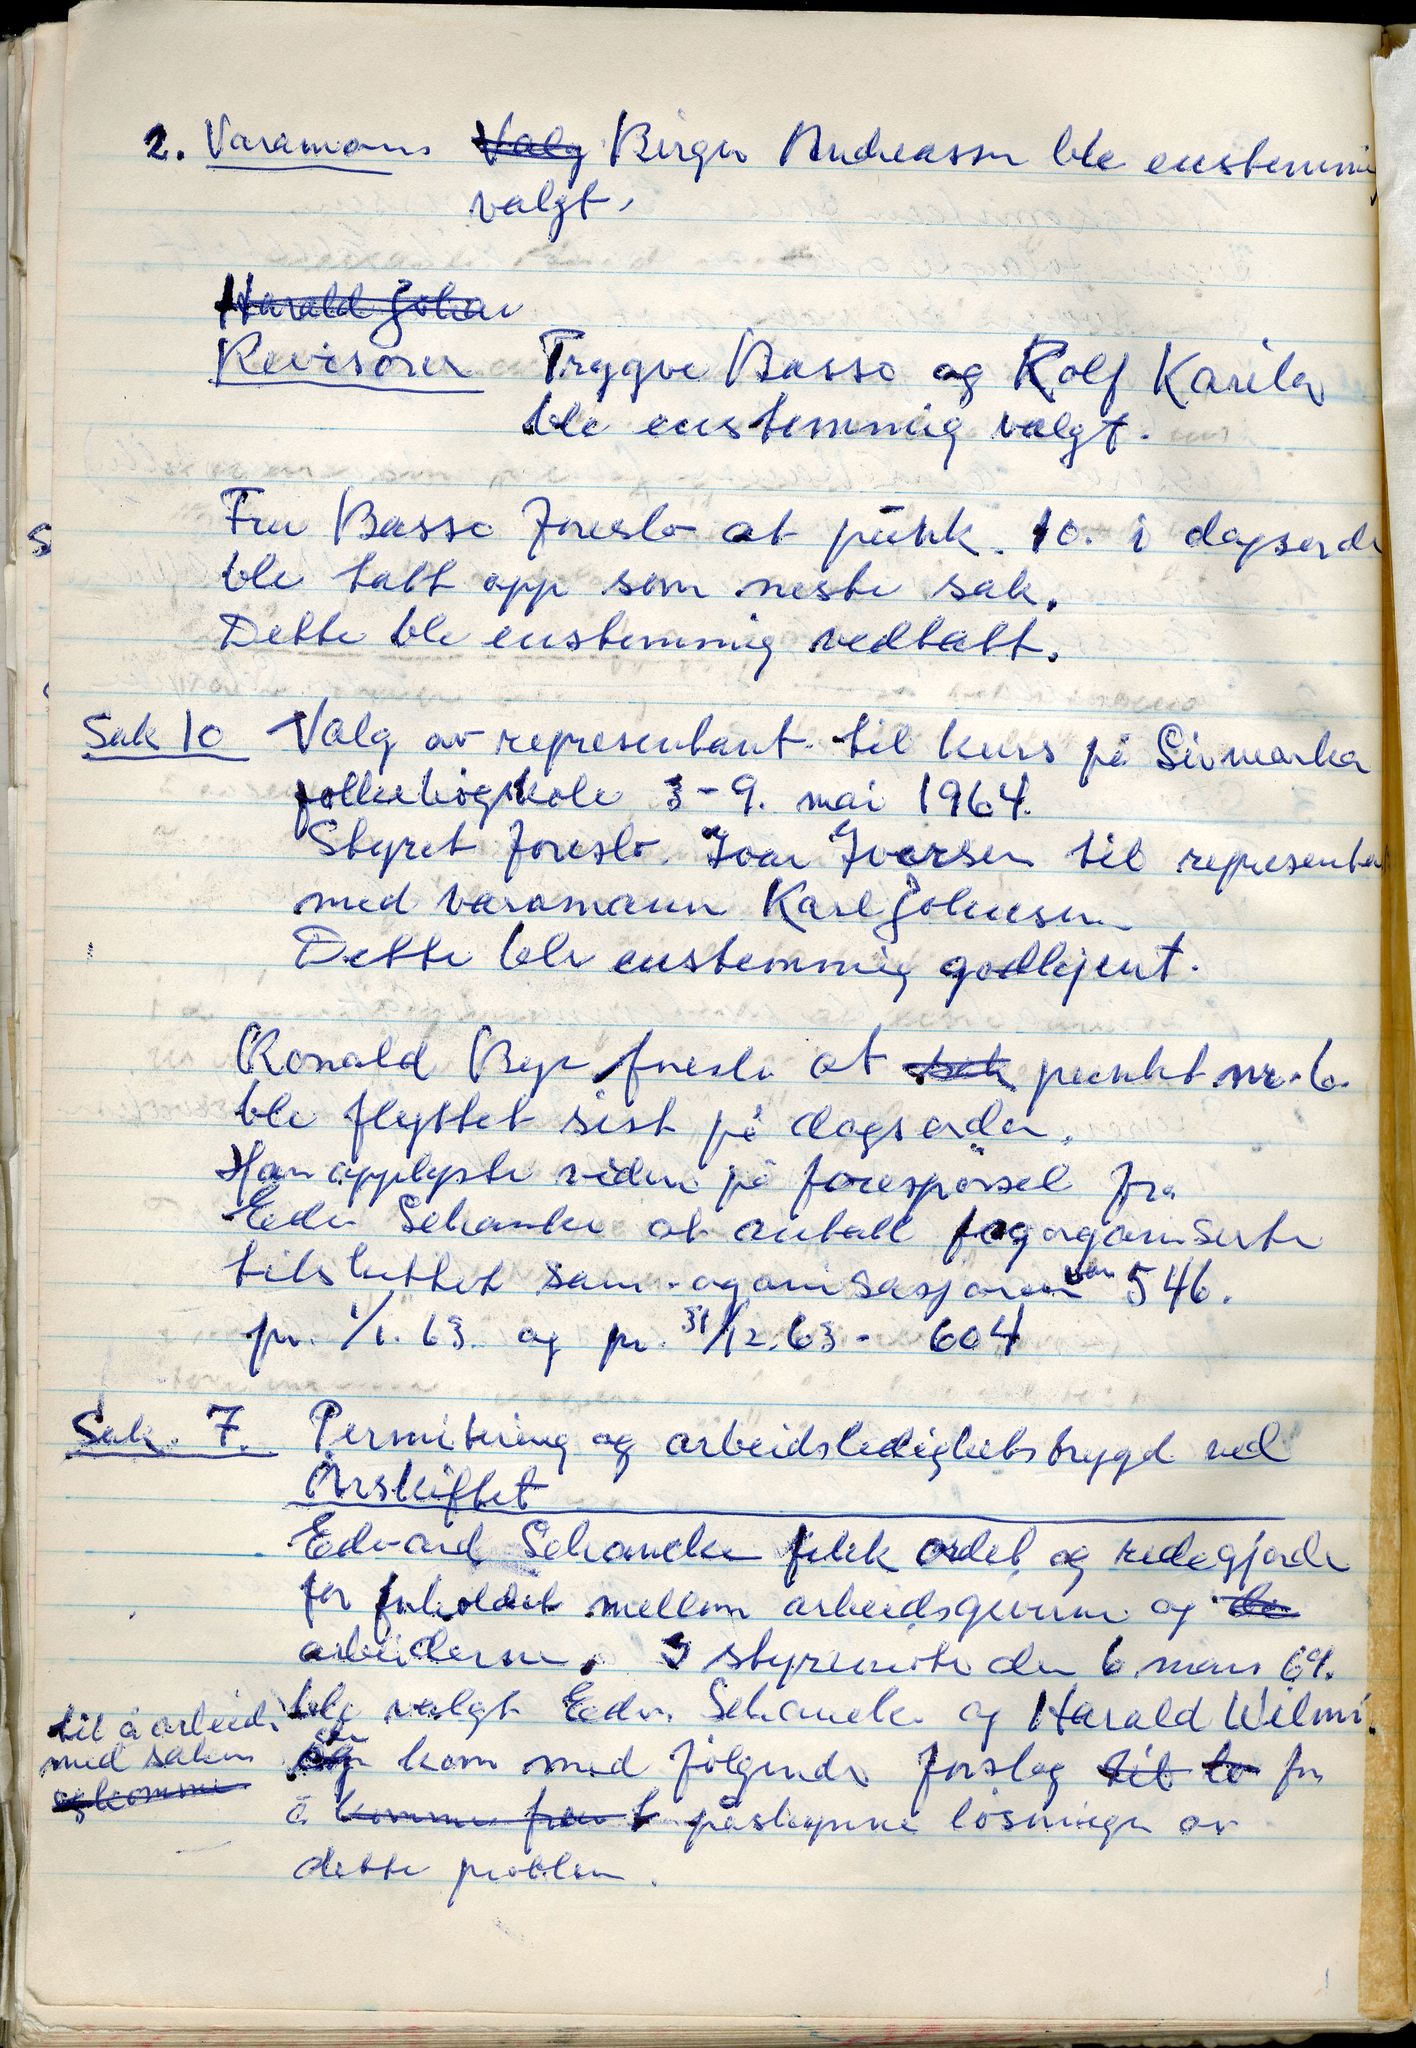 2. Varamann ~~Valg~~ Birger Andreassen ble enstemmi
valgt.
~~Harald Johan~~
Revisorer Trygve Basso og Rolf Karila
ble enstemmig valgt.
Fru Basso foreslo at punk. 10. i dagsord
ble tatt opp som neste sak.
Dette ble enstemmig vedtatt.
Sak 10 Valg av representant til kurs på Sivmarka
folkehögskole 3-9. mai 1964.
Styret foreslo. Ivar Iversen til represent
med varamann Karl Johnsen
Dette ble enstemmig godkjent.
Ronald Bye foreslo at ~~sak~~ punkt nr. 6.
ble flyttet sist på dagsorden.
Han opplyste viden på forespørsel fra
Edv. Schancke at antall fagorganiserte
tilsluttet sam-organisasjonen var 546.
pr. 1/1. 63. og pr. 31/12. 63 - 604
Sak. 7. Permitering og arbeidsledighetstrygd ved
Årskiftet
Edvard Schancke fikk ordet og redegjorde
for forholdet mellem arbeidsgiverne og ~~de~~
arbeiderne. I styremöte den 6. mars 64.
ble valgt Edv. Schancke og Harald Wilmi.
til å arbeide
med saken
~~og komme~~
De kom med fölgende forslag ~~til~~ ~~to~~ for
å ~~komme frem t~~ påskynne lösninge av
dette problem.